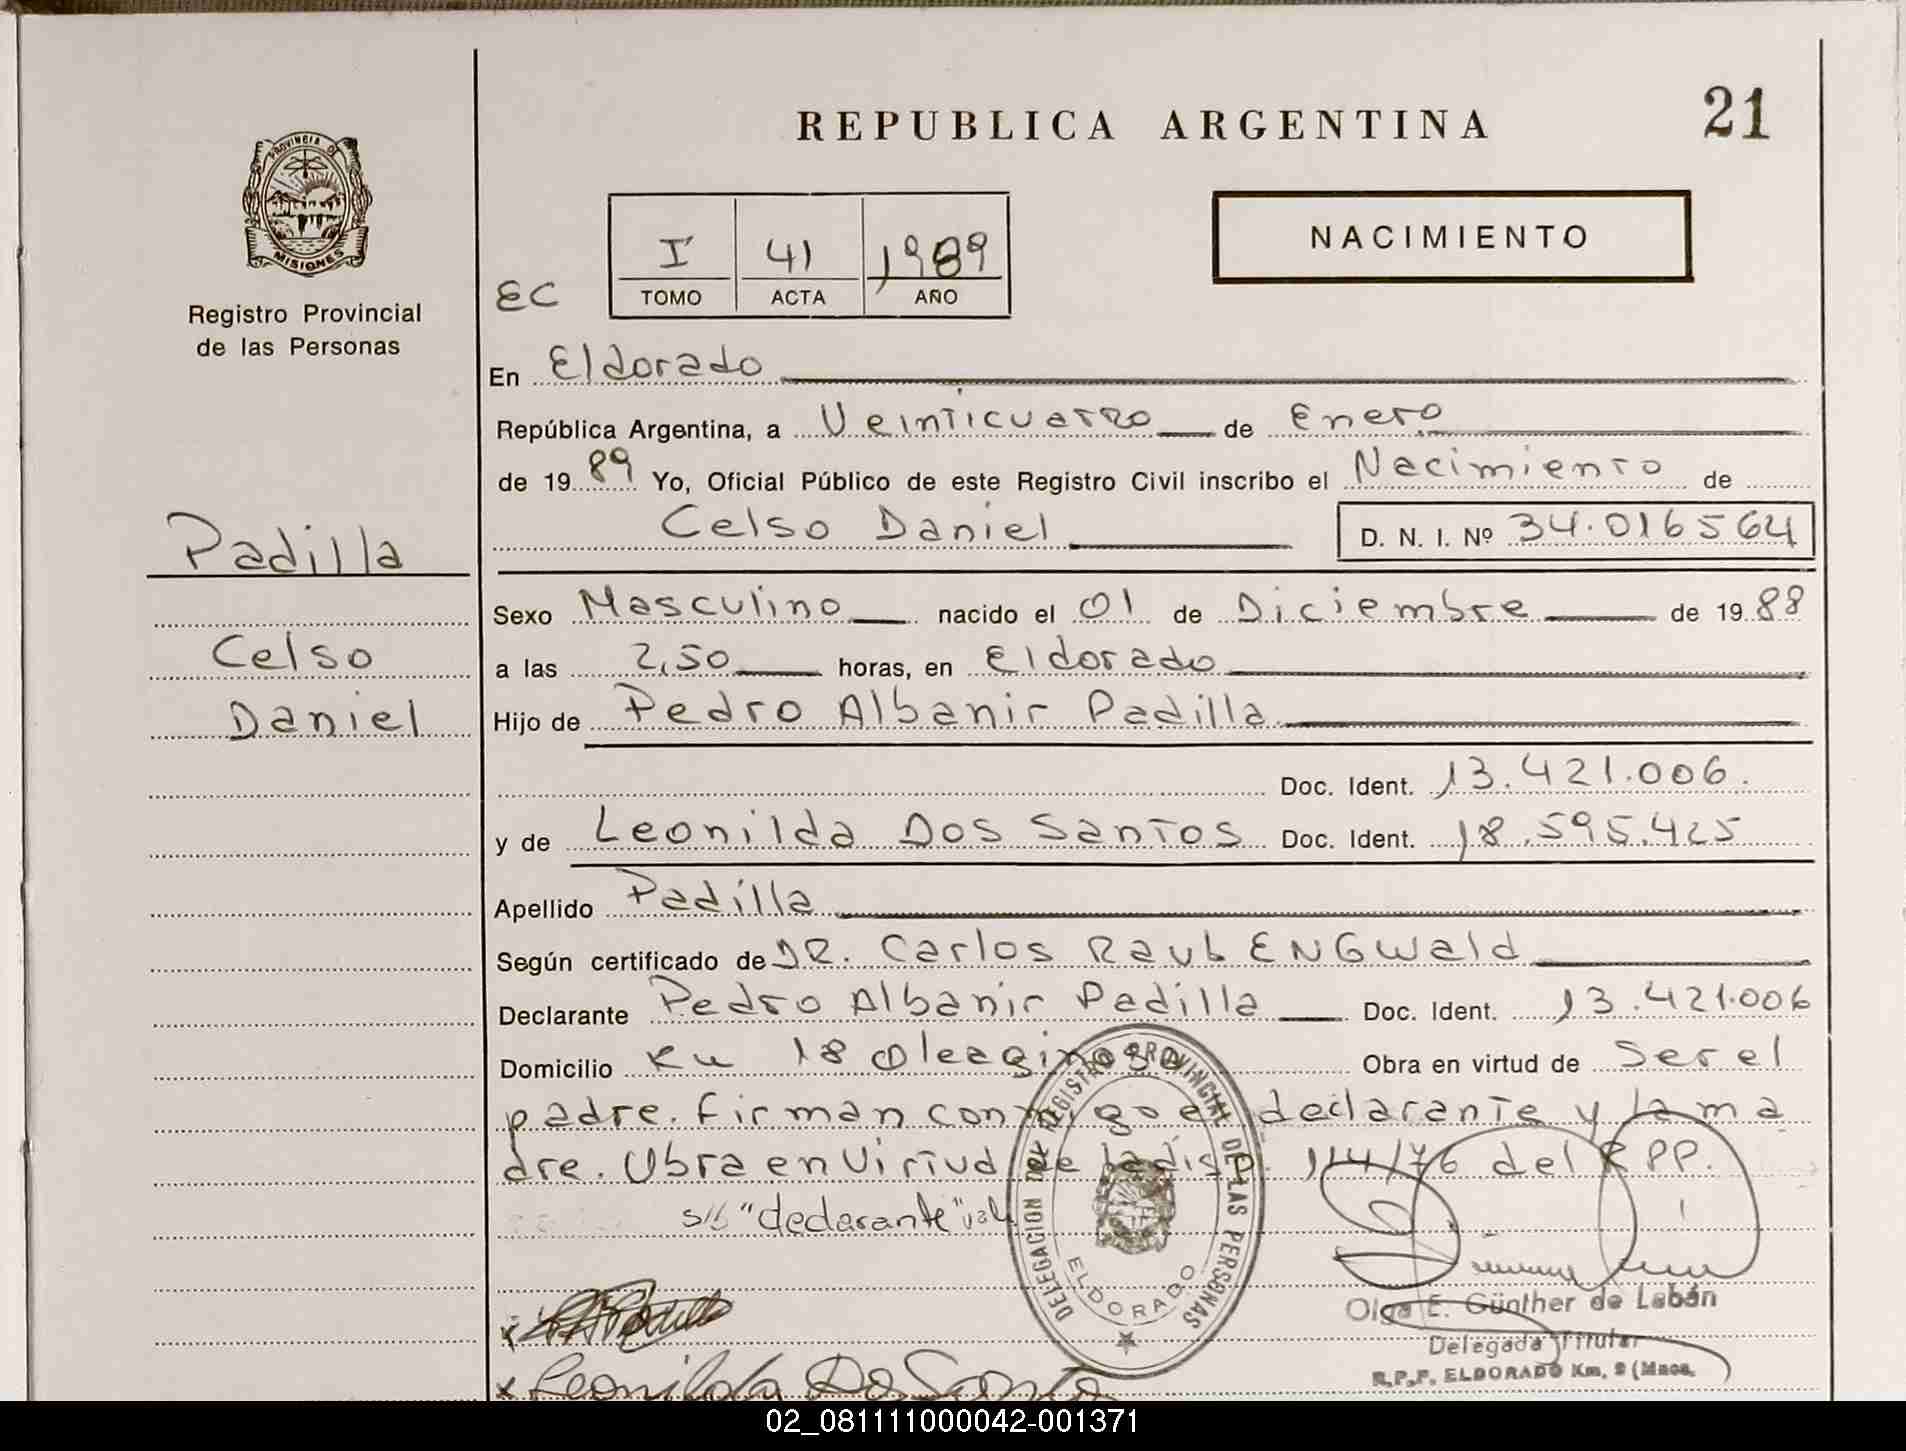 REPUBLICA ARGENTINA
21
PROVINCIA DE
MISIONES
Registro Provincial
de las Personas
EC
I 41 1989
TOMO ACTA AÑO
NACIMIENTO
En Eldorado
República Argentina, a Veinticuatro de Enero
de 1989 Yo, Oficial Público de este Registro Civil inscribo el Nacimiento de
Celso Daniel D. N. I. Nº 34.016564
Padilla
Celso
Daniel
Sexo Masculino nacido el 01 de Diciembre de 1988
a las 2,50 horas, en Eldorado
Hijo de Pedro Albanir Padilla
Doc. Ident. 13.421.006.
y de Leonilda Dos Santos Doc. Ident. 18.595.425
Apellido Padilla
Según certificado de DR. Carlos Raul ENGWald
Declarante Pedro Albanir Padilla Doc. Ident. 13.421.006
Domicilio Km 18 Oleaginosa Obra en virtud de Ser el
padre. Firman conmigo el declarante y la ma
dre. Obra en Virtud de la disp. 114/76 del RPP.
s/b "declarante" vale
DELEGACION DEL REGISTRO PROVINCIAL DE LAS PERSONAS
ELDORADO
Olga E. Günther de Labán
Delegada Titular
R.P.P. ELDORADO Km. 9 (Mnes.
x
x Leonilda Do Santo
02_081111000042-001371